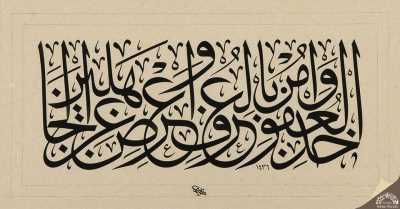 خذ العفو وأمر بالعرف وأعرض عن الجاهلين
١٤٣٦